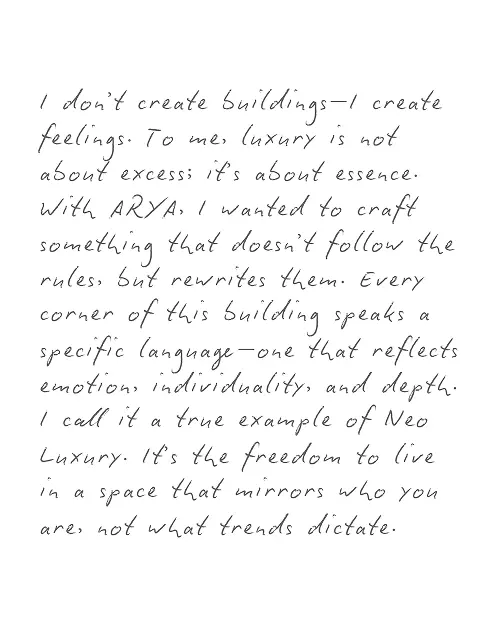 I don't create buildings—I create
feelings. To me, luxury is not
about excess; it's about essence.
With ARYA, I wanted to craft
something that doesn't follow the
rules, but rewrites them. Every
corner of this building speaks a
specific language—one that reflects
emotion, individuality, and depth.
I call it a true example of Neo
Luxury. It's the freedom to live
in a space that mirrors who you
are, not what trends dictate.